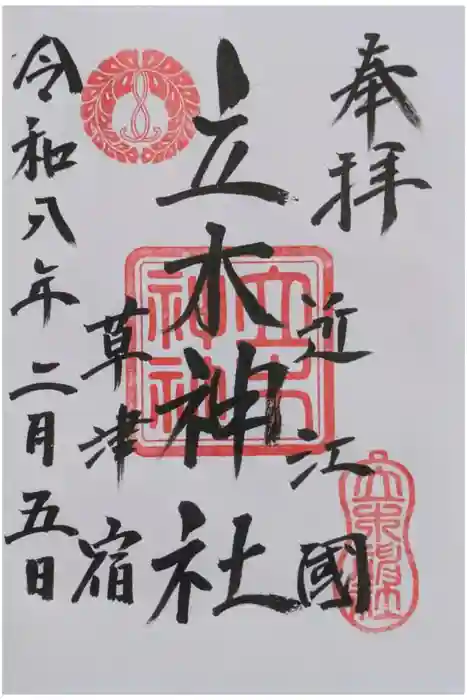 奉拝
近江國
立木神社
草津宿
令和八年二月五日
立木神社